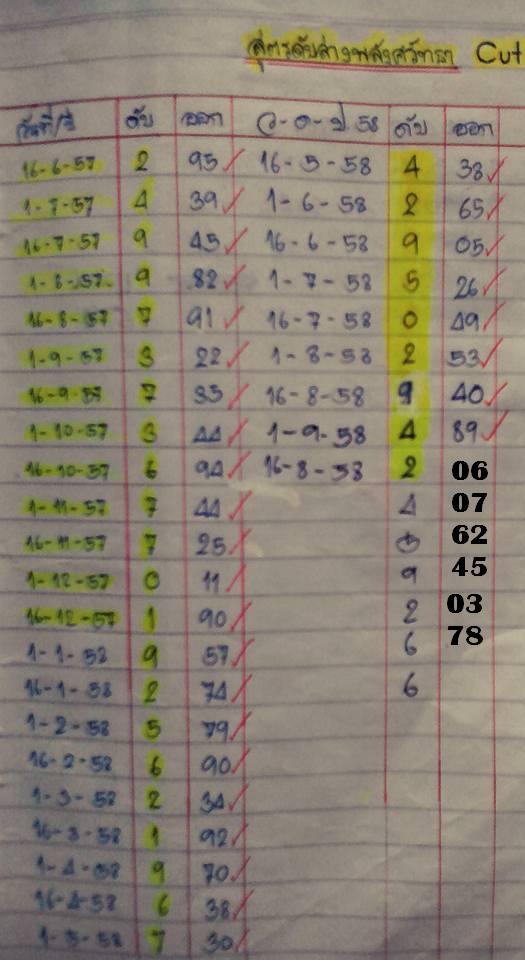 สูตรดับล่างพลังศรัทธา Cut
วันที่/ปี ดับ ออก ว-ด-ป 58 ดับ ออก
16-6-57 2 95 16-5-58 4 38
1-7-57 4 39 1-6-58 2 65
16-7-57 9 45 16-6-58 9 05
1-8-57 9 82 1-7-58 5 26
16-8-57 7 91 16-7-58 0 49
1-9-57 3 22 1-8-58 2 53
16-9-57 7 35 16-8-58 9 40
1-10-57 3 44 1-9-58 4 89
16-10-57 6 94 16-8-58 2 06
1-11-57 7 44 4 07
16-11-57 7 25 62
1-12-57 0 11 9 45
16-12-57 1 90 2 03
1-1-58 9 57 6 78
16-1-58 2 74 6
1-2-58 5 79
16-2-58 6 90
1-3-58 2 34
16-3-58 1 92
1-4-58 9 70
16-4-58 6 38
1-5-58 7 30